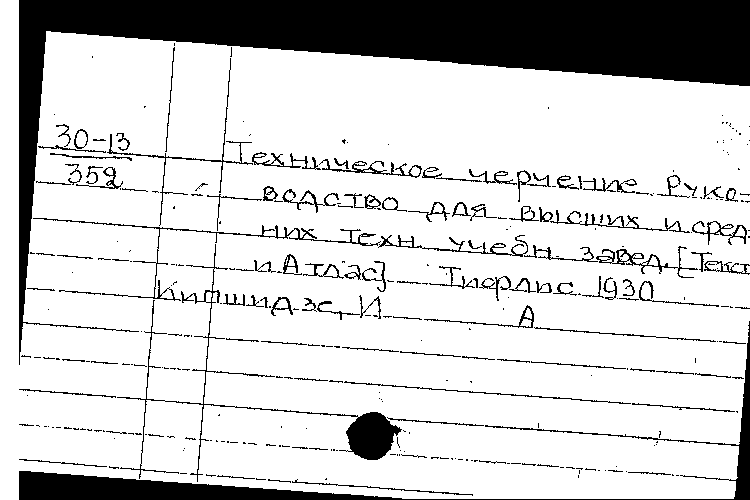 30-13
352
Техническое черчение Руко-
водство для высших и сред-
них техн. учебн. завед. [Текст
и Атлас] Тифлис 1930
Кипшидзе, И
А